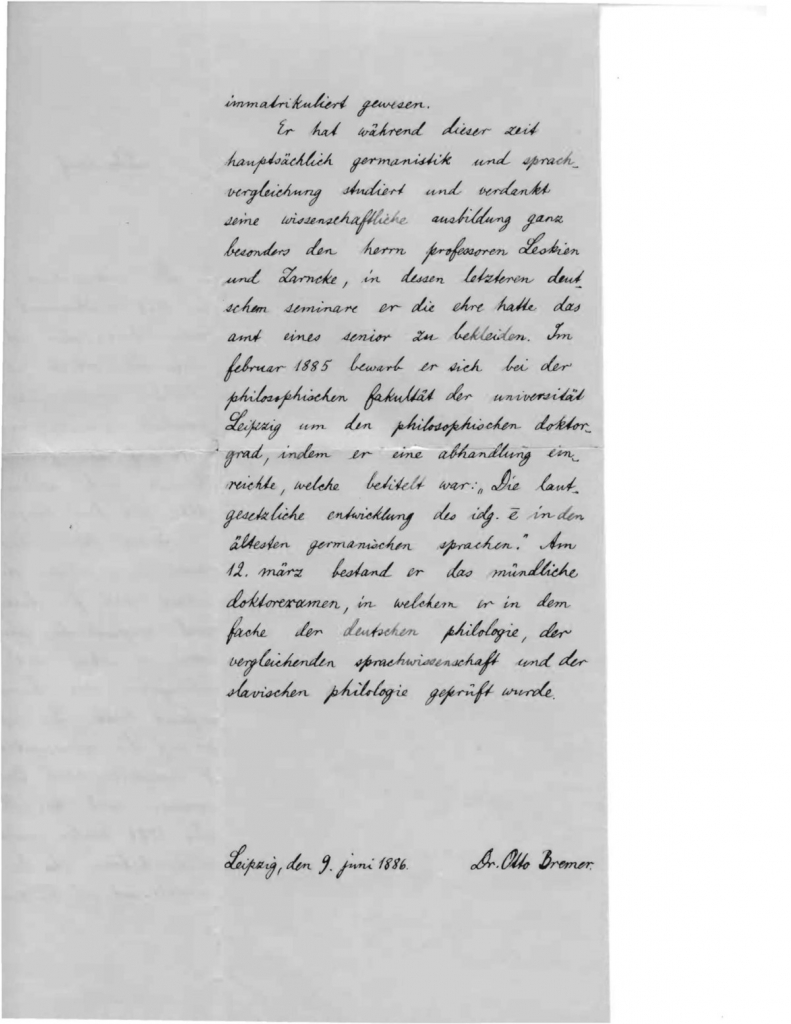 immatrikuliert gewesen.
Er hat während dieser zeit
hauptsächlich germanistik und sprach-
vergleichung studiert und verdankt
seine wissenschaftliche ausbildung ganz
besonders den herrn professoren Leskien
und Zarncke, in dessen letzteren deut-
schem seminare er die ehre hatte das
amt eines senior zu bekleiden. Im
februar 1885 bewarb er sich bei der
philosophischen fakultät der universität
Leipzig um den philosophischen doktor-
grad, indem er eine abhandlung ein-
reichte, welche betitelt war: „Die laut-
gesetzliche entwicklung des idg. ē in den
ältesten germanischen sprachen." Am
12. märz bestand er das mündliche
doktorexamen, in welchem er in dem
fache der deutschen philologie, der
vergleichenden sprachwissenschaft und der
slavischen philologie geprüft wurde.
Leipzig, den 9. juni 1886. Dr. Otto Bremer.